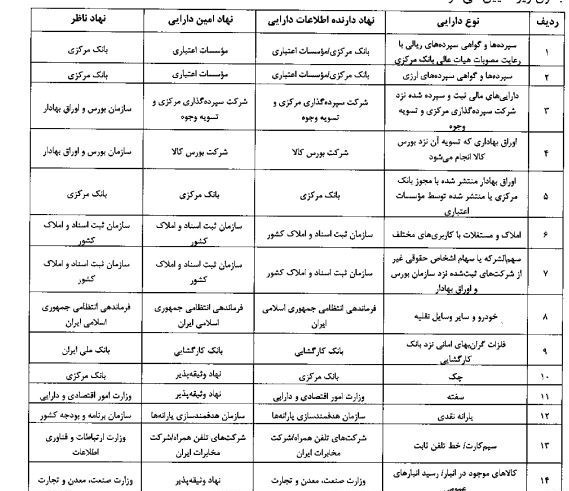 ردیف	نوع دارایی	نهاد دارنده اطلاعات دارایی	نهاد امین دارایی	نهاد ناظر
۱	سپرده‌ها و گواهی سپرده‌های ریالی با	بانک مرکزی/مؤسسات اعتباری	مؤسسات اعتباری	بانک مرکزی
رعایت مصوبات هیات عالی بانک مرکزی
۲	سپرده‌ها و گواهی سپرده‌های ارزی	بانک مرکزی/مؤسسات اعتباری	مؤسسات اعتباری	بانک مرکزی
۳	دارایی‌های مالی ثبت و سپرده شده نزد	شرکت سپرده‌گذاری مرکزی و	شرکت سپرده‌گذاری مرکزی و	سازمان بورس و اوراق بهادار
شرکت سپرده‌گذاری مرکزی و تسویه	تسویه وجوه	تسویه وجوه
وجوه
۴	اوراق بهاداری که تسویه آن نزد بورس	شرکت بورس کالا	شرکت بورس کالا	سازمان بورس و اوراق بهادار
کالا انجام می‌شود
۵	اوراق بهادار منتشر شده با مجوز بانک	بانک مرکزی	بانک مرکزی	بانک مرکزی
مرکزی یا منتشر شده توسط مؤسسات
اعتباری
۶	املاک و مستغلات با کاربری‌های مختلف	سازمان ثبت اسناد و املاک کشور	سازمان ثبت اسناد و املاک	سازمان ثبت اسناد و املاک
کشور	کشور
۷	سهم‌الشرکه یا سهام اشخاص حقوقی غیر	سازمان ثبت اسناد و املاک کشور	سازمان ثبت اسناد و املاک	سازمان ثبت اسناد و املاک
از شرکت‌های ثبت‌شده نزد سازمان بورس	کشور	کشور
و اوراق بهادار
۸	خودرو و سایر وسایل نقلیه	فرماندهی انتظامی جمهوری اسلامی	فرماندهی انتظامی جمهوری	فرماندهی انتظامی جمهوری
ایران	اسلامی ایران	اسلامی ایران
۹	فلزات گران‌بهای امانی نزد بانک	بانک کارگشایی	بانک کارگشایی	بانک ملی ایران
کارگشایی
۱۰	چک	بانک مرکزی	نهاد وثیقه‌پذیر	بانک مرکزی
۱۱	سفته	وزارت امور اقتصادی و دارایی	نهاد وثیقه‌پذیر	وزارت امور اقتصادی و دارایی
۱۲	یارانه نقدی	سازمان هدفمندسازی یارانه‌ها	سازمان هدفمندسازی یارانه‌ها	سازمان برنامه و بودجه کشور
۱۳	سیم‌کارت/ خط تلفن ثابت	شرکت‌های تلفن همراه/شرکت	شرکت‌های تلفن همراه/شرکت	وزارت ارتباطات و فناوری
مخابرات ایران	مخابرات ایران	اطلاعات
۱۴	کالاهای موجود در انبار/ رسید انبارهای	وزارت صنعت، معدن و تجارت	نهاد وثیقه‌پذیر	وزارت صنعت، معدن و تجارت
عمومی